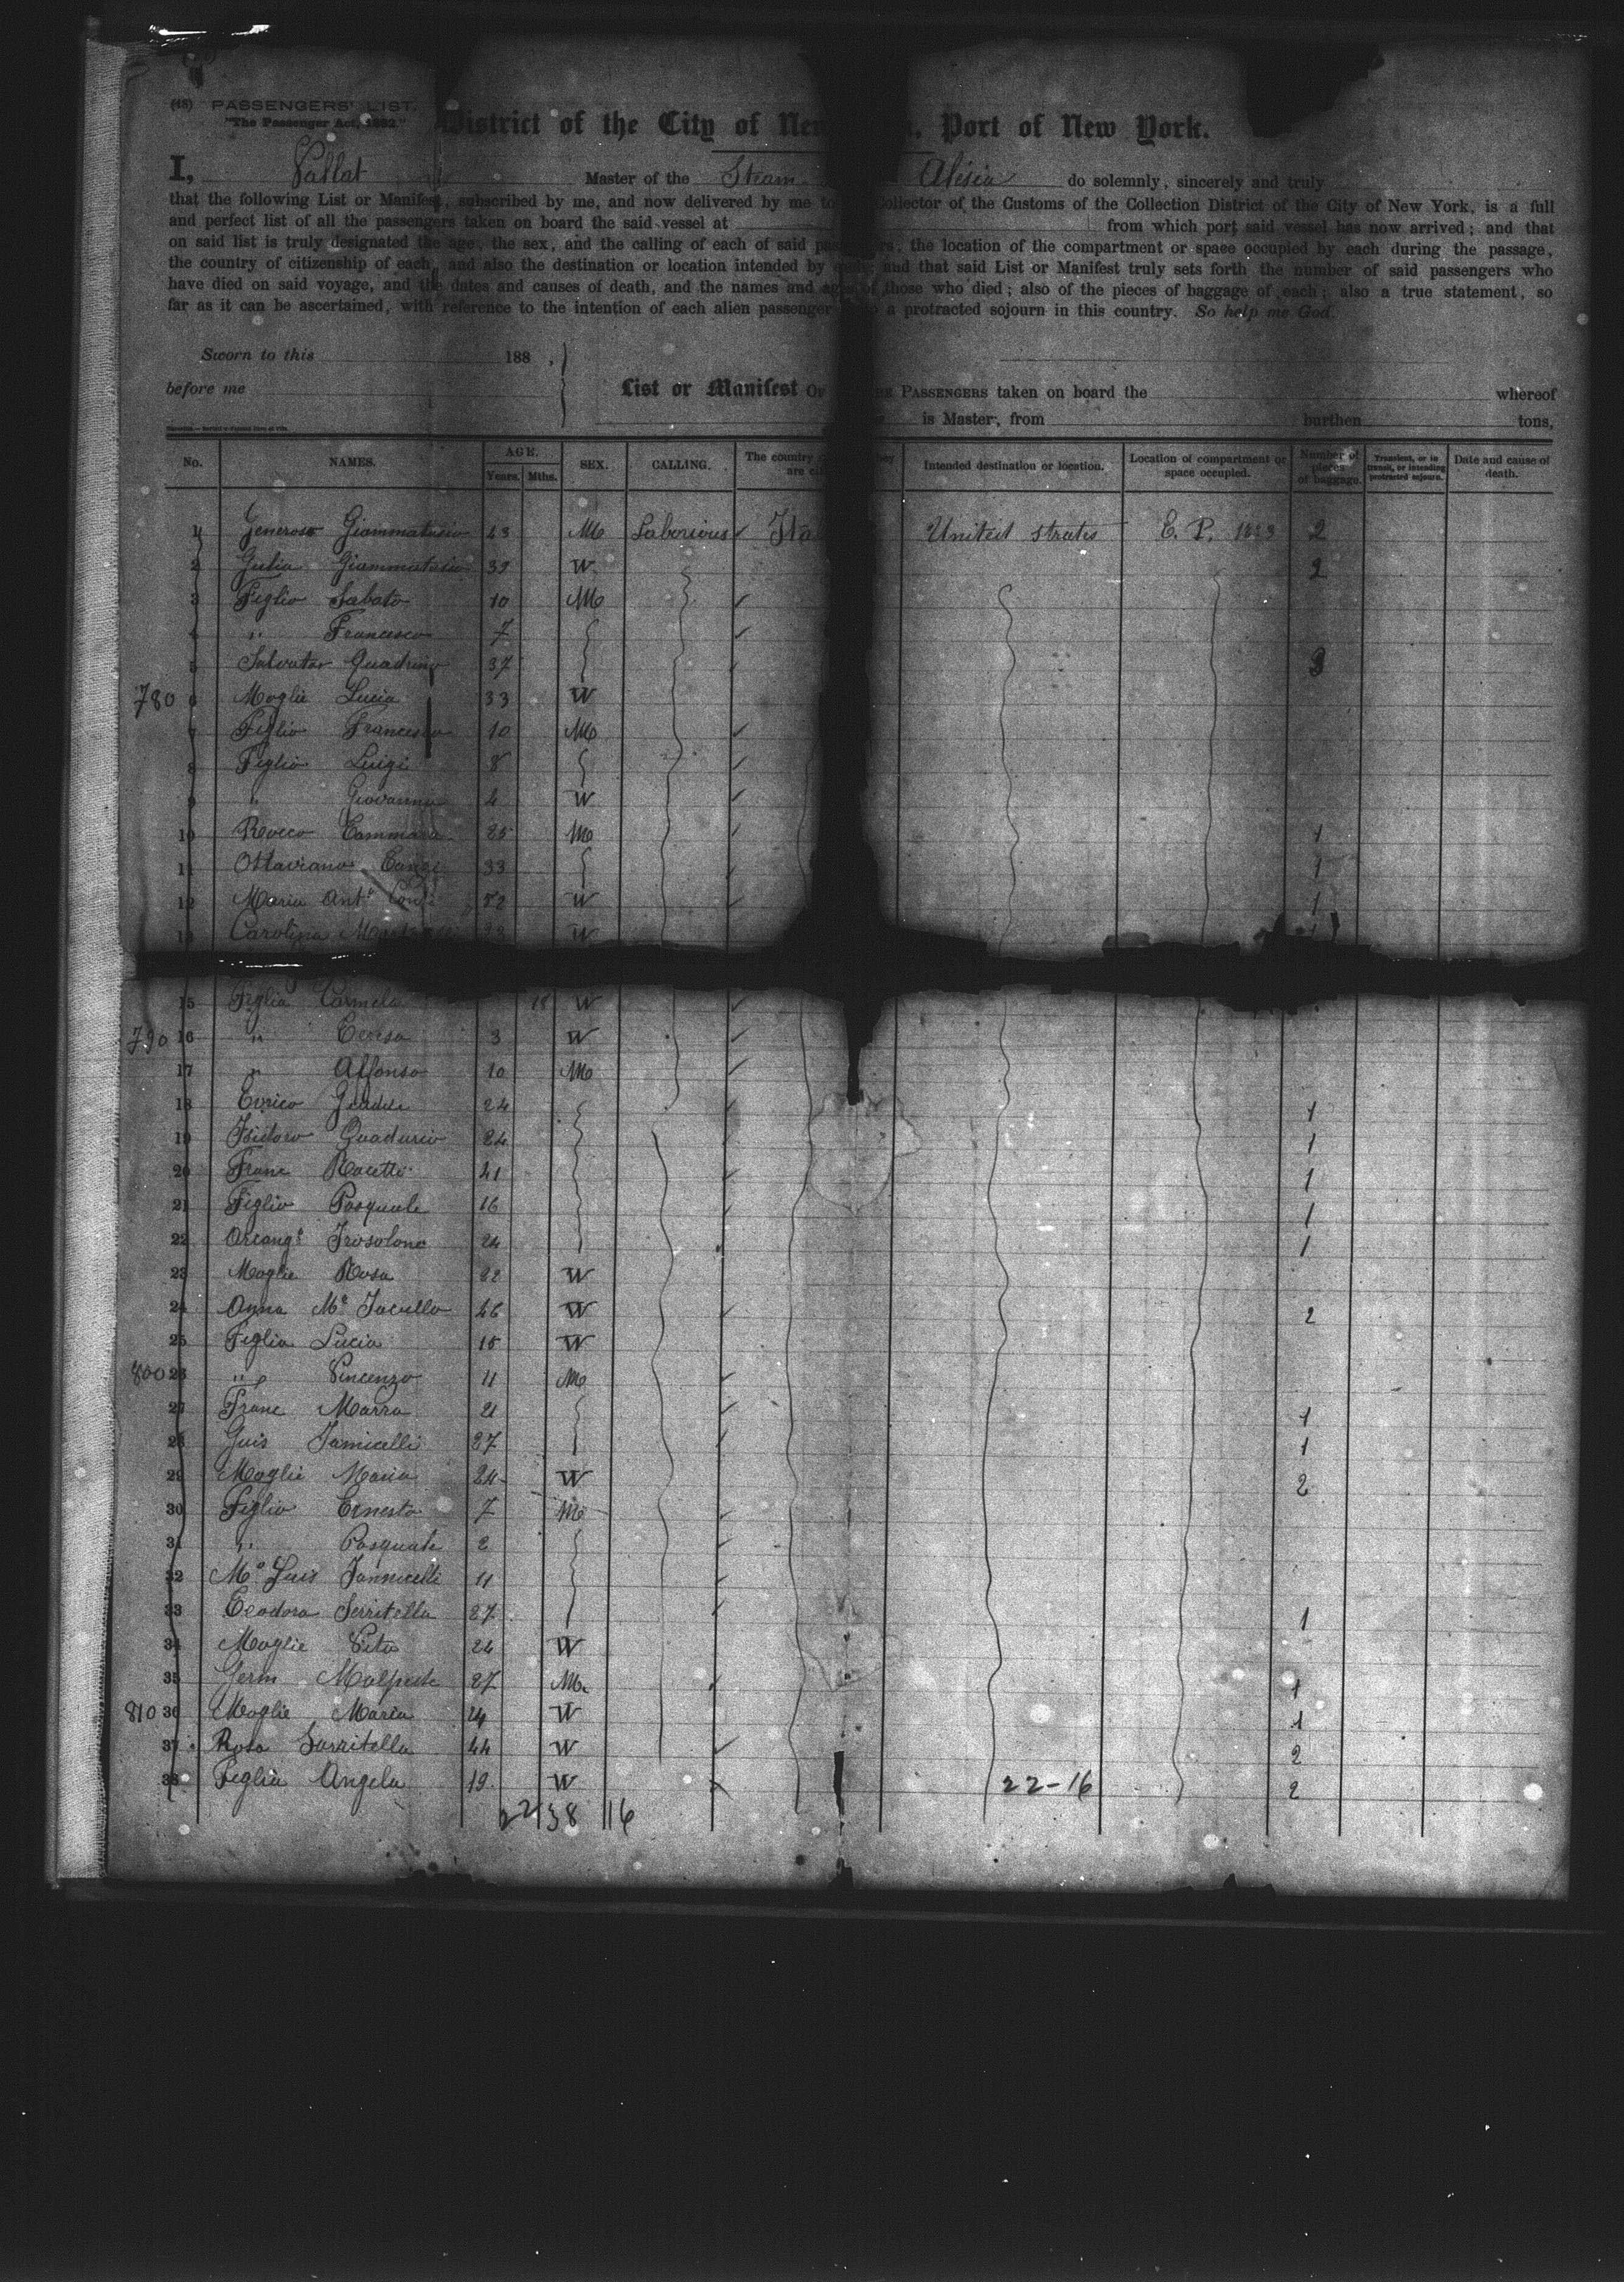 (48) PASSENGERS' LIST.
"The Passenger Act, 1882."
District of the City of New Port of New York.
I, Vallat Master of the Steam Alisia do solemnly, sincerely and truly
that the following List or Manifest, subscribed by me, and now delivered by me to Collector of the Customs of the Collection District of the City of New York, is a full
and perfect list of all the passengers taken on board the said vessel at from which port said vessel has now arrived; and that
on said list is truly designated the age, the sex, and the calling of each of said the location of the compartment or space occupied by each during the passage,
the country of citizenship of each, and also the destination or location intended by and that said List or Manifest truly sets forth the number of said passengers who
have died on said voyage, and the dates and causes of death, and the names and ages of those who died; also of the pieces of baggage of each; also a true statement, so
far as it can be ascertained, with reference to the intention of each alien passenger a protracted sojourn in this country. So help me God.
Sworn to this 188 ,
before me List or Manifest OF PASSENGERS taken on board the whereof
is Master, from burthen tons,
No. NAMES. AGE. Years. Mths. SEX. CALLING. The country Intended destination or location. Location of compartment or space occupied. Number of pieces of baggage. Transient, or in transit, or intending protracted sojourn. Date and cause of death.
1 Generoso 23 M Laborious Ita United strates E. P. 2
2 Giulia 39 W 2
3 Figlio Sabato 10 M
4 " Francesco 7
5 Salvator Quadrino 37
780 6 Moglie Lucia 33 W
7 Figlio Francesco 10 M
8 Figlio Luigi 8
9 " Giovanna 4 W
10 Rocco Cammara 25 M 1
11 Ottaviano 33 1
12 Maria Antª 52 W 1
Carolina 23 W
15 Figlia Carmela 18 W
790 16 " Teresa 3 W
17 " Alfonso 10 M
18 Enrico 24 1
19 Isidoro Quadurio 24 1
20 Franc Racetti 41 1
21 Figlio Pasquale 16 1
22 Arcangº Frosolone 24 1
23 Moglie Rosa 22 W
24 Anna Mª Iacullo 46 W 2
25 Figlia Lucia 15 W
800 26 " Vincenzo 11 M
27 Franc Marra 21 1
28 Guis Iannicelli 27 1
29 Moglie Maria 24 W 2
30 Figlio Ernesto 7 M
31 " Pasquale 2
32 Mª Luis Iannicelli 11
33 Teodora Serritella 27 1
34 Moglie Vita 24 W
35 Germ Malpede 27 M. 1
810 36 Moglie Maria 24 W 1
37 Rosa Sarritella 44 W 2
38 Figlia Angela 19 W 22-16 2
22 38 16